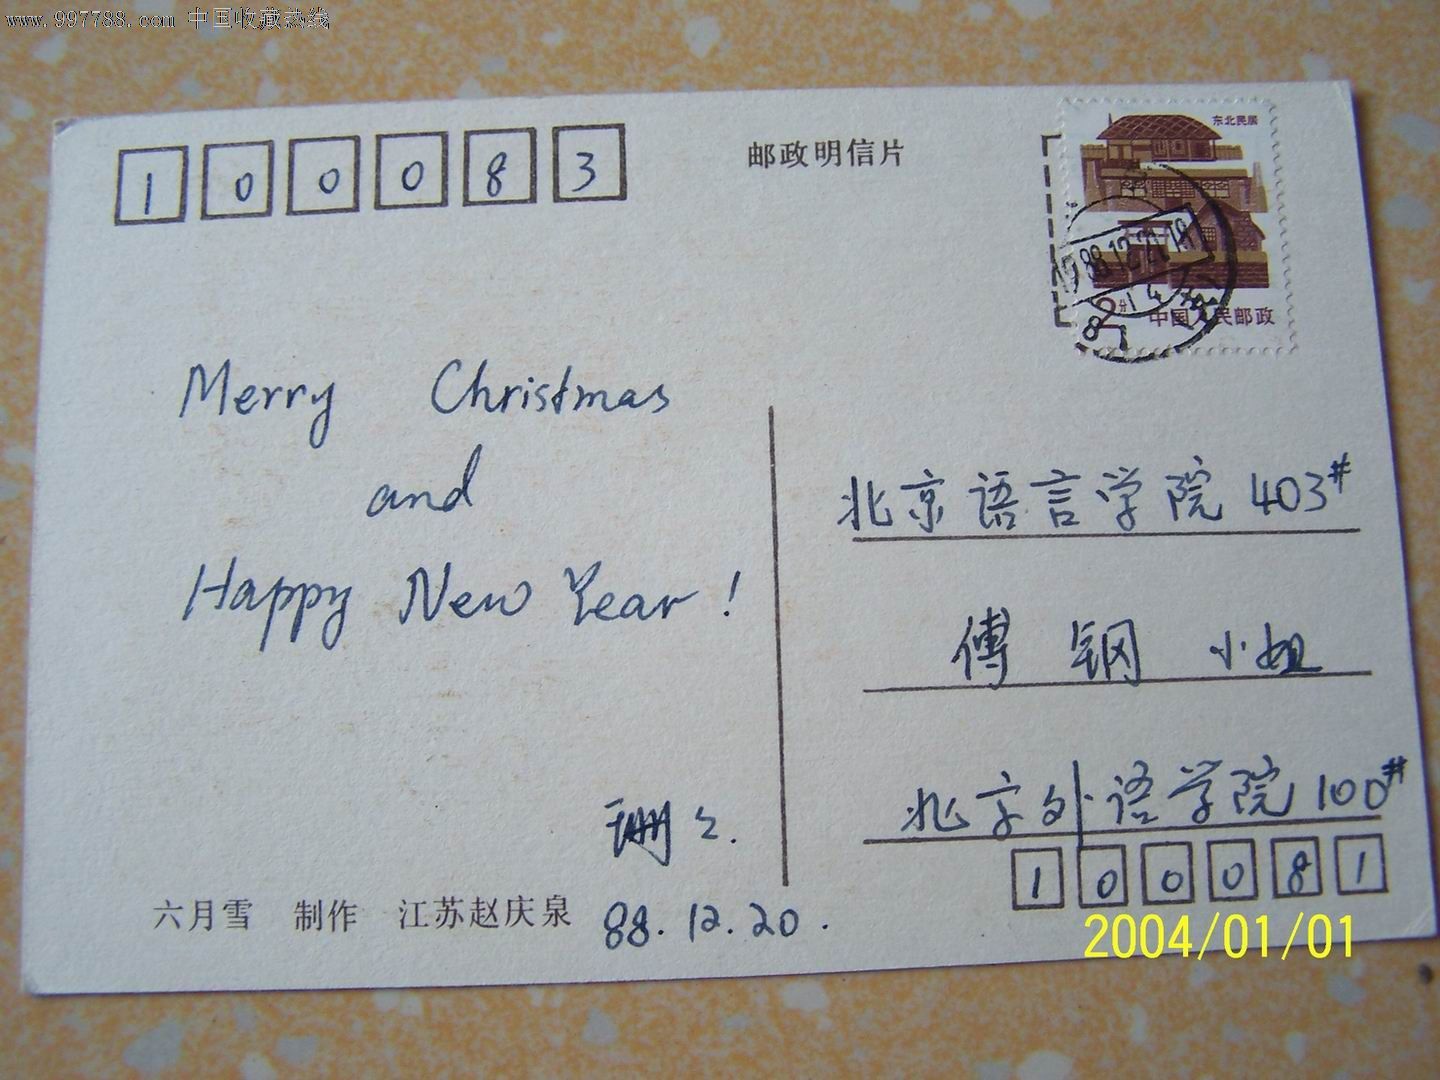 www.997788.com 中国收藏热线
100083
邮政明信片
东北民居
1988.12.21.18
中国人民邮政
Merry Christmas
and
Happy New Year!
珊
88.12.20.
北京语言学院 403#
傅 钢 小姐
北京外语学院 100#
100081
六月雪 制作 江苏赵庆泉
2004/01/01